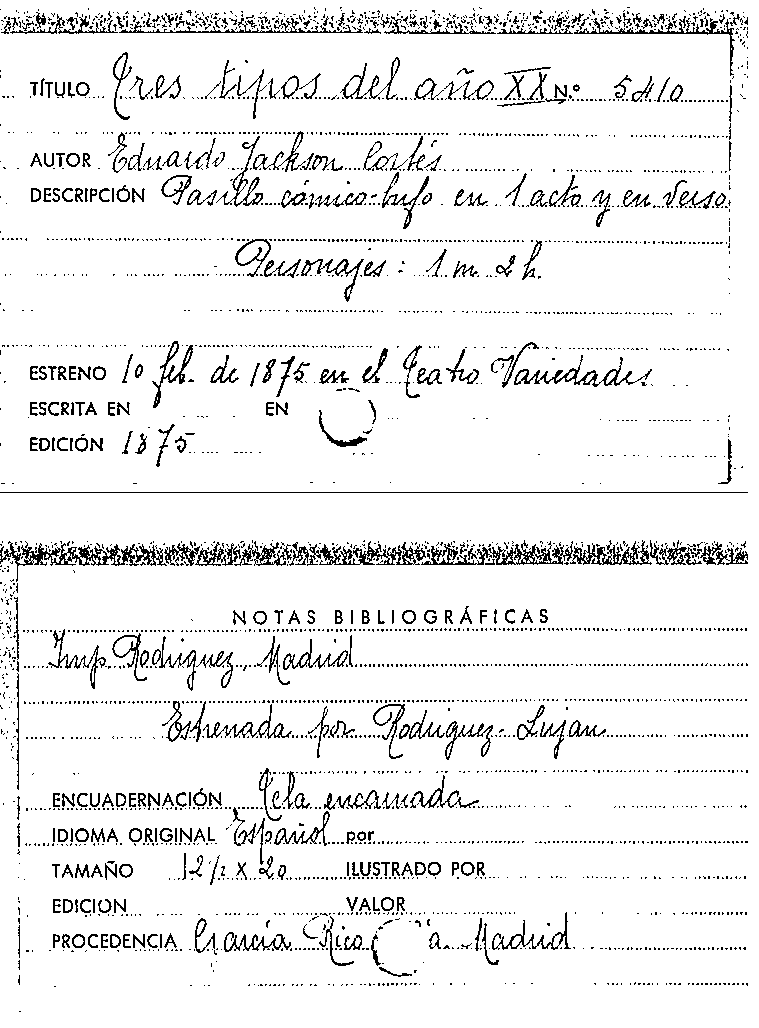 TÍTULO Tres tipos del año XX N.º 5410
AUTOR Eduardo Jackson Cortés
DESCRIPCIÓN Pasillo cómico-bufo en 1 acto y en verso
Personajes: 1 m. 2 h.
ESTRENO 10 feb. de 1875 en el Teatro Variedades
ESCRITA EN EN
EDICIÓN 1875
NOTAS BIBLIOGRÁFICAS
Imp. Rodriguez, Madrid
Estrenada por Rodriguez-Lujan
ENCUADERNACIÓN Tela encarnada
IDIOMA ORIGINAL Español por
TAMAÑO 12 1/2 x 20 ILUSTRADO POR
EDICION VALOR
PROCEDENCIA García Rico a. Madrid